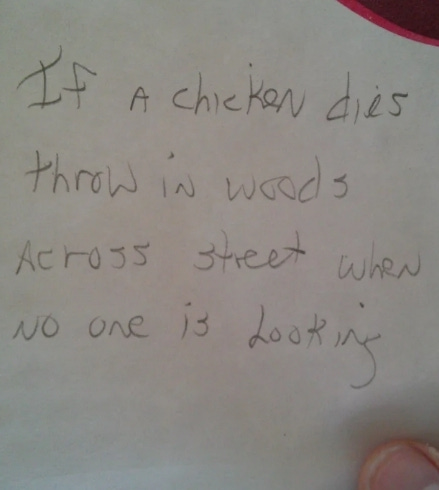 If A chicken dies
throw in woods
Across street when
no one is Looking